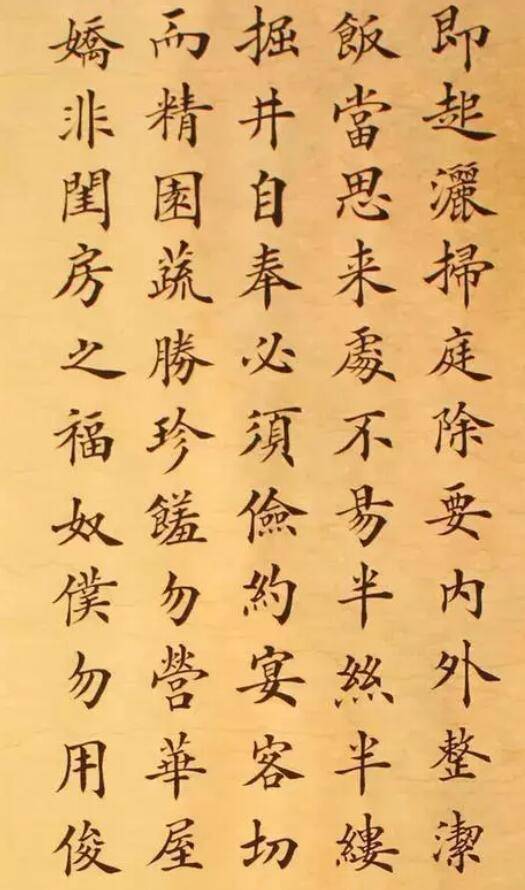 即起灑掃庭除要内外整潔
飯當思来處不易半絲半縷
掘井自奉必須儉約宴客切
而精園蔬勝珍饈勿營華屋
嬌非閨房之福奴僕勿用俊